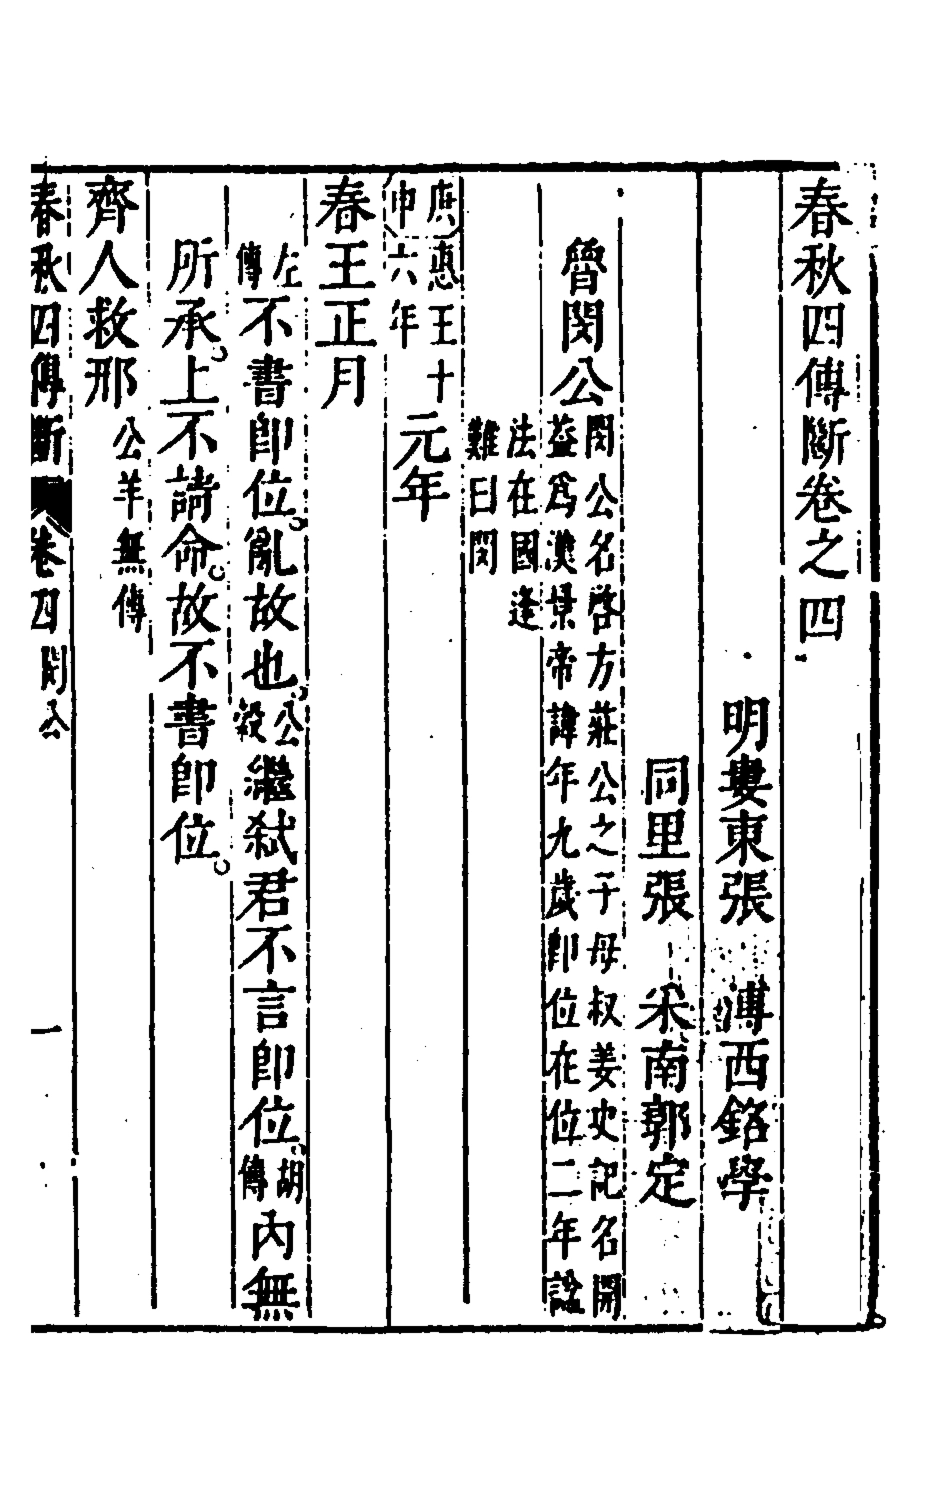 春秋四傳斷卷之四
明婁東張　溥西銘學
同里張　采南郭定
魯閔公
閔公名啓方莊公之子母叔姜史記名開
益爲漢景帝諱年九歲卽位在位二年諡
法在國逢
難曰閔
庚惠王十
申六年
元年
春王正月
左傳不書卽位亂故也公穀繼弒君不言卽位胡傳內無
所承上不請命故不書卽位
齊人救邢公羊無傳
春秋四傳斷　卷四　閔公　一